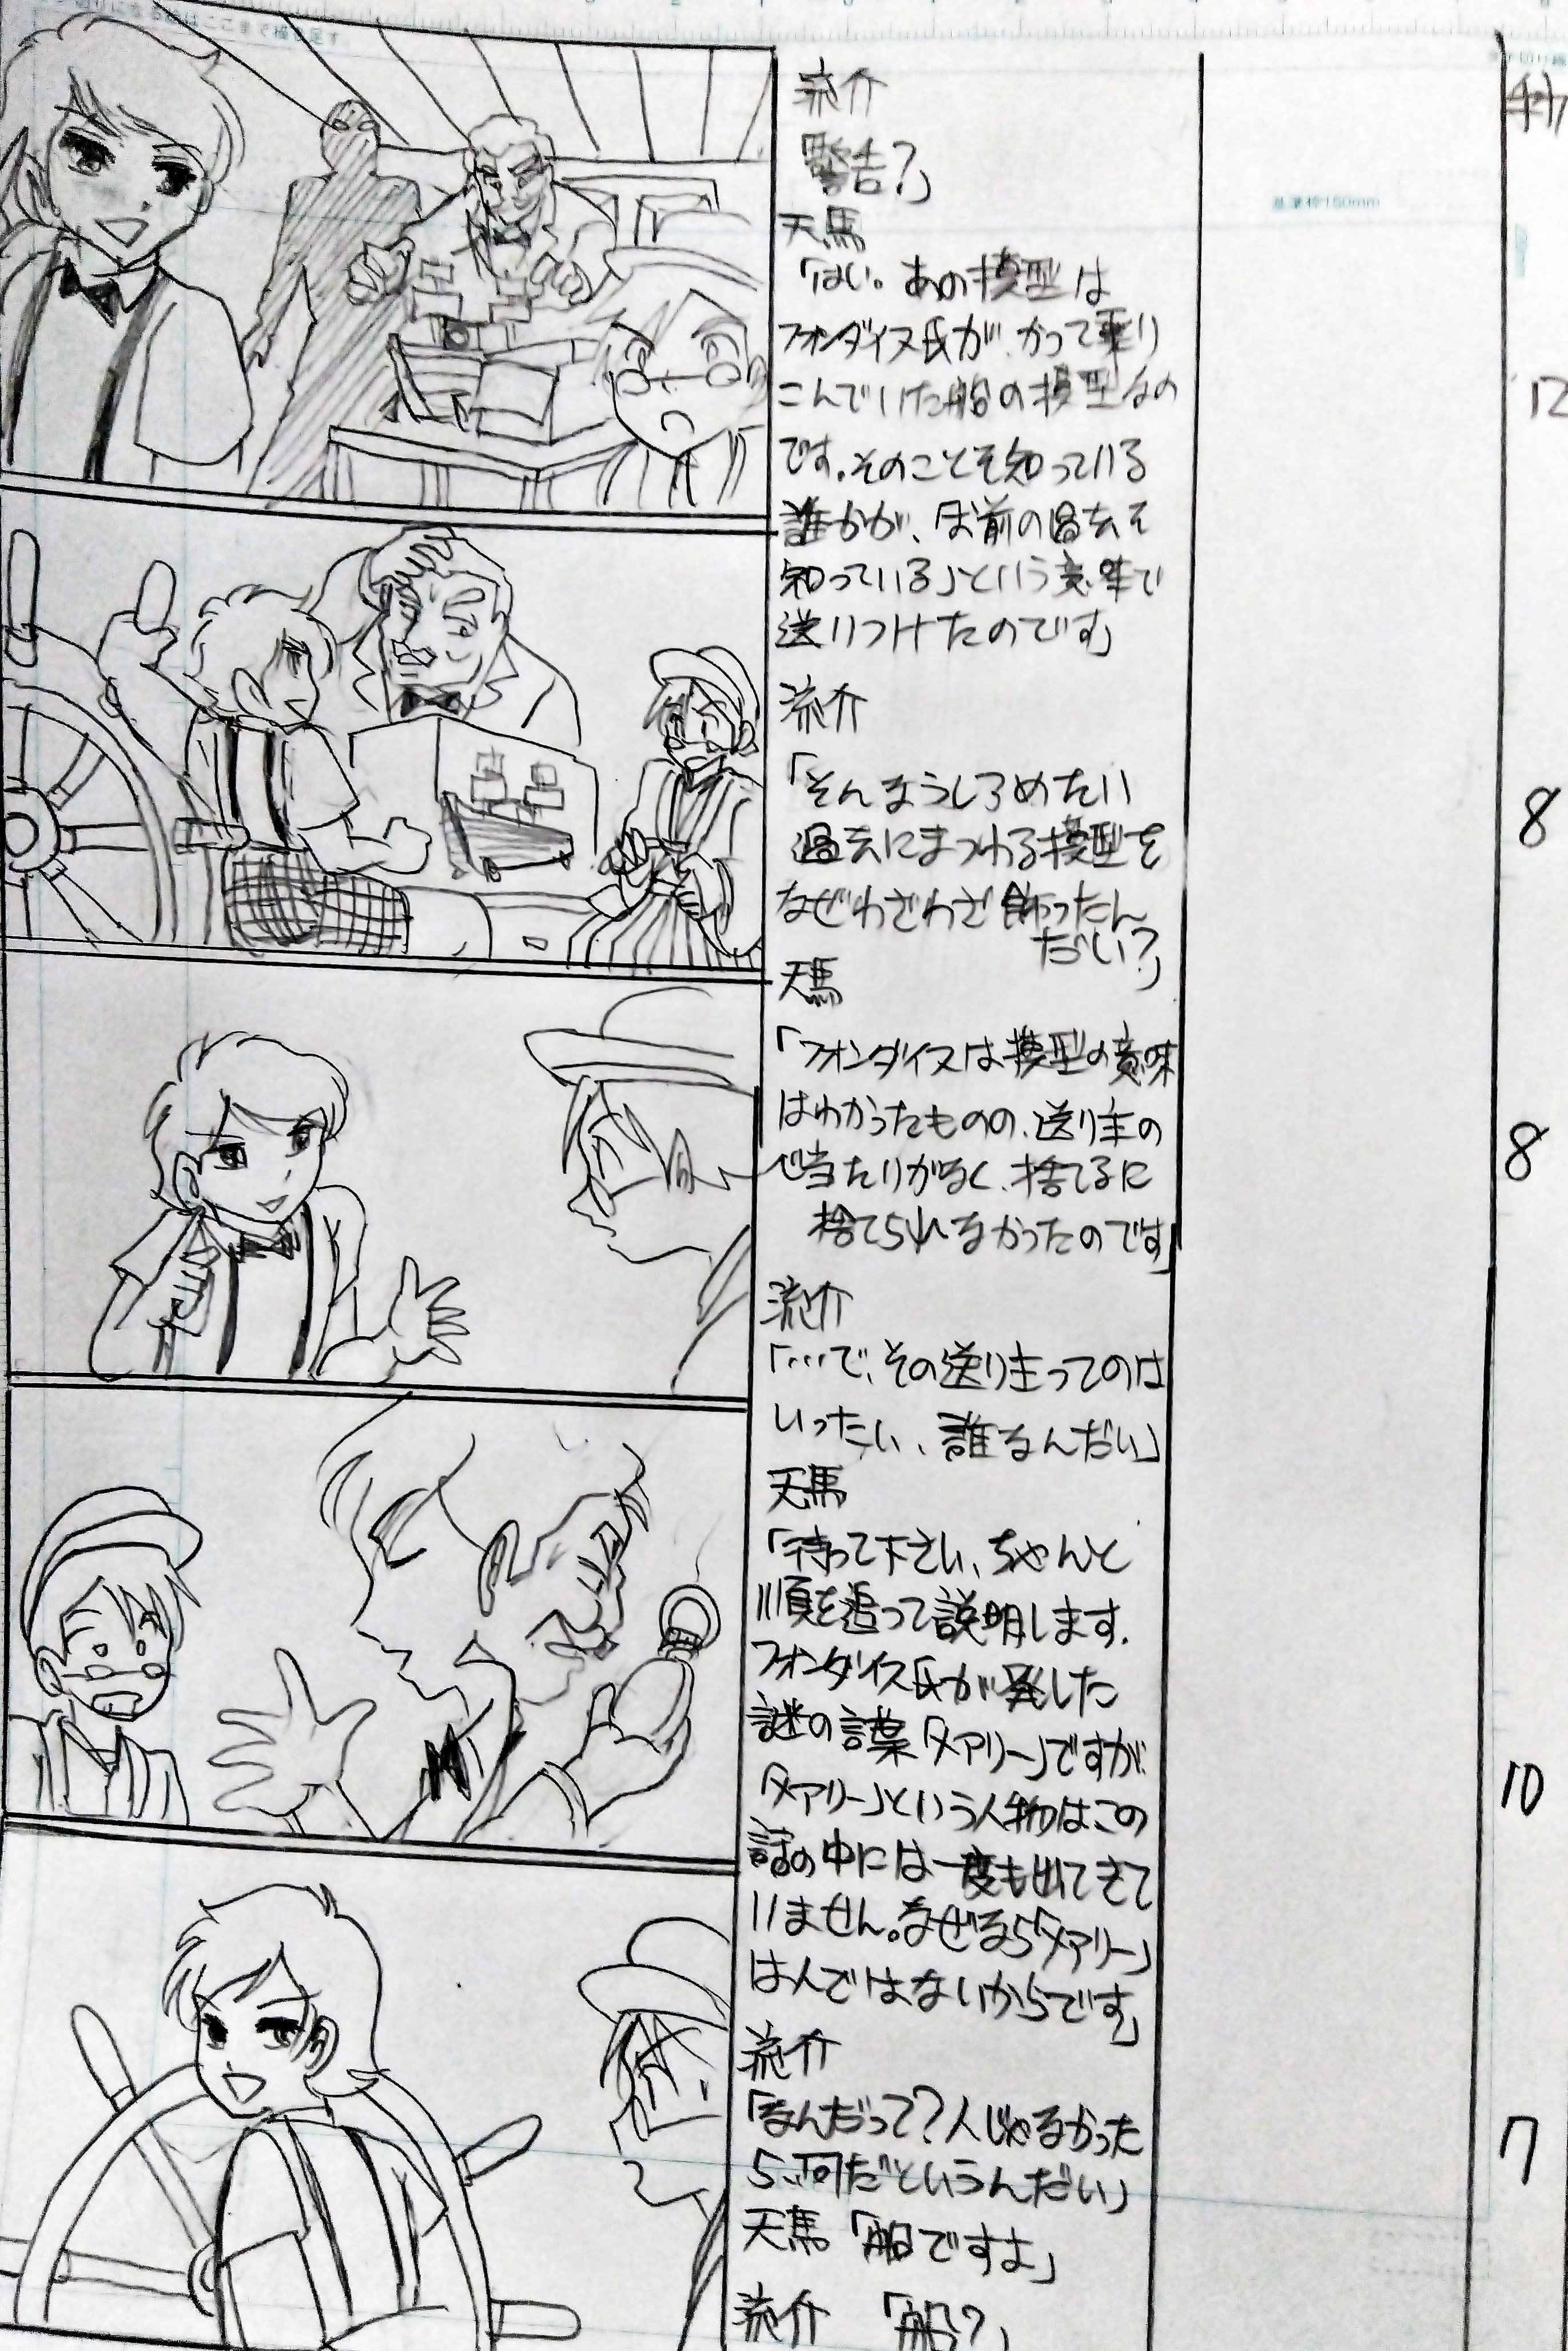 流介
「警告?」
天馬
「はい。あの模型は
フォンダイス氏が、かつて乗り
こんでいた船の模型なの
です。そのことを知っている
誰かが、「お前の過去を
知っている」という意味で
送りつけたのです」
流介
「そんなうしろめたい
過去にまつわる模型を
なぜわざわざ飾ったん
だい?」
天馬
「フォンダイスは模型の意味
はわかったものの、送り主の
心当たりがなく、捨てるに
捨てられなかったのです」
流介
「…で、その送り主ってのは
いったい、誰なんだい」
天馬
「待って下さい、ちゃんと
順を追って説明します。
フォンダイス氏が発した
謎の言葉「メアリー」ですが
「メアリー」という人物はこの
話の中には一度も出てきて
いません。なぜなら「メアリー」
は人ではないからです」
流介
「なんだって?人じゃなかった
ら、何だというんだい」
天馬「船ですよ」
流介 「船?」
秒
12
8
8
10
7
基準枠150mm